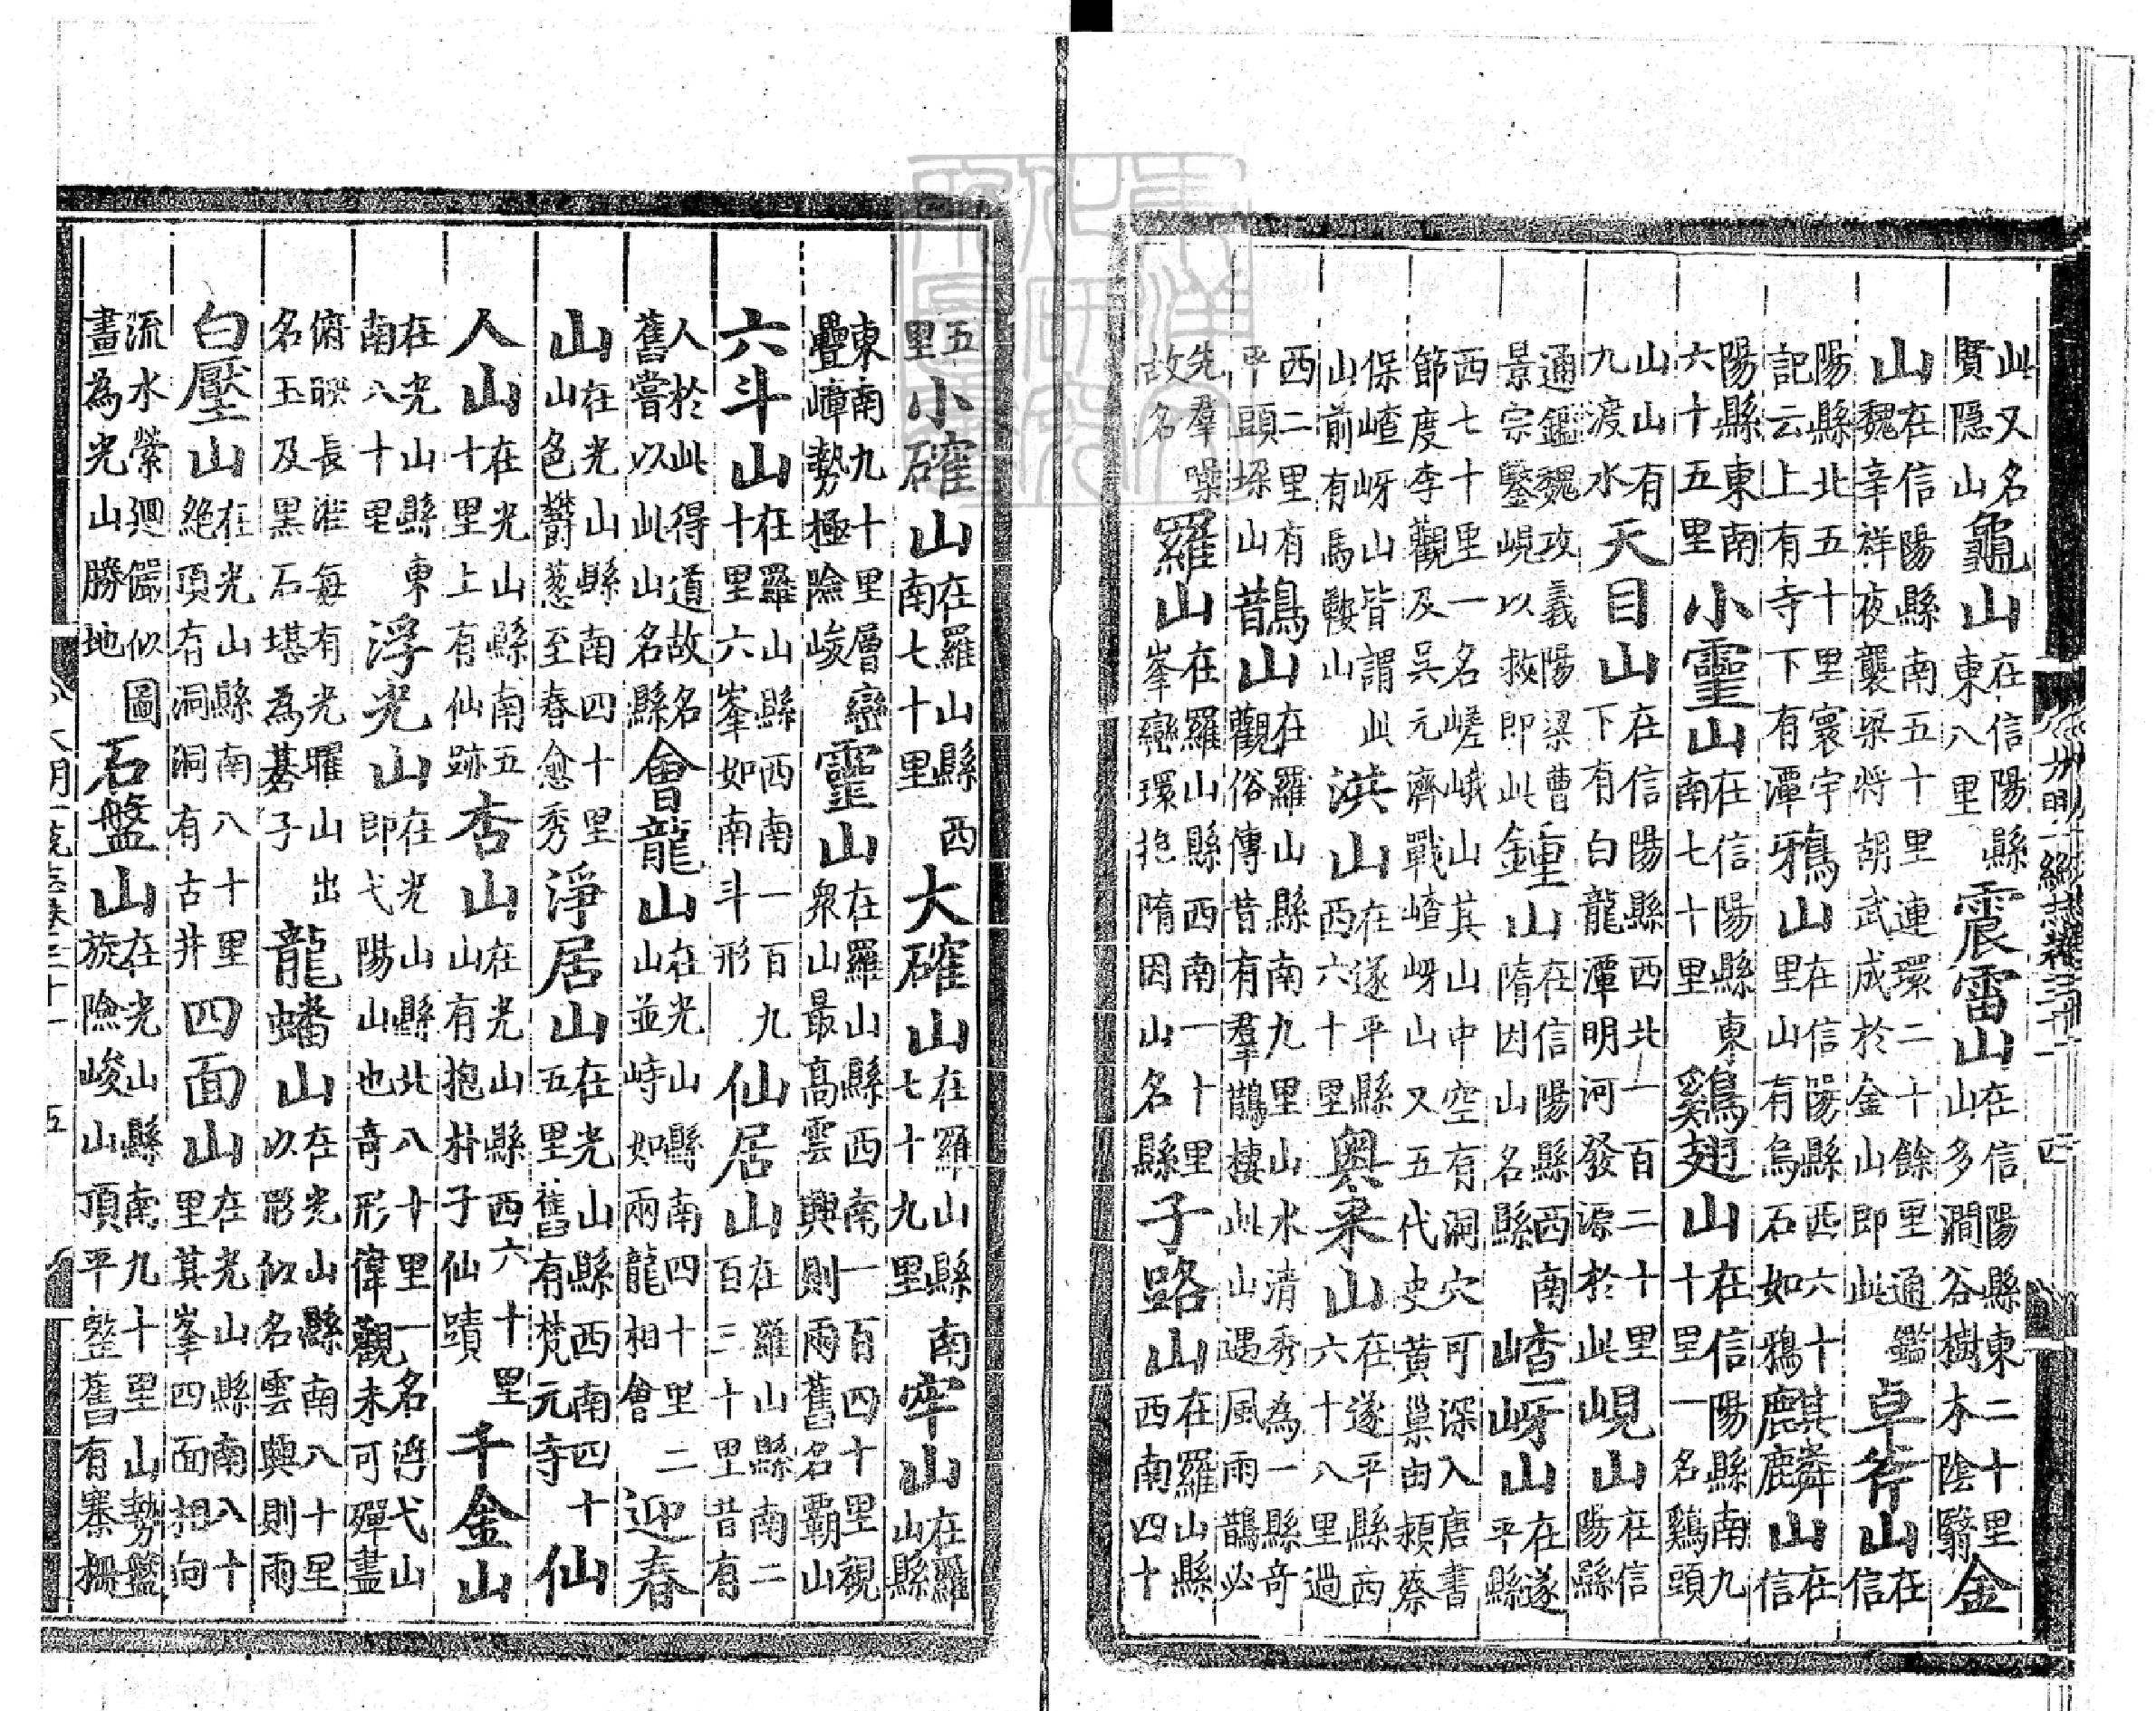 大明一統志卷三十一 四
此又名賢隱山龜山在信陽縣東八里震雷山在信陽縣東二十里山多澗谷樹木陰翳金
山在信陽縣南五十里連環二十餘里通鑑魏辛祥夜襲梁將胡武成於金山即此卓斧山在信
陽縣北五十里寰宇記云上有寺下有潭鴉山在信陽縣西六十里山有烏石如鴉麒麟山在信
陽縣東南六十五里小靈山在信陽縣東南七十里雞翅山在信陽縣南九十里一名雞頭
山山有九渡水天目山在信陽縣西北一百二十里下有白龍潭明河發源於此峴山在信陽縣
通鑑魏攻義陽梁曹景宗鑿峴以救即此鍾山在信陽縣西南隋因山名縣嵖岈山在遂平縣
西七十里一名嵯峨山其山中空有洞穴可深入唐書節度李觀及吳元濟戰嵖岈山又五代史黃巢由潁蔡
保嵖岈山皆謂此山前有馬鞍山洪山在遂平縣西六十里奧來山在遂平縣西六十八里過
西二里有平頭垛山鵲山在羅山縣南九里山水清秀為一縣奇觀俗傳昔有羣鵲棲此山遇風雨鵲必
先羣噪故名羅山在羅山縣西南一十里峯巒環抱隋因山名縣子路山在羅山縣西南四十
五里小確山在羅山縣西南七十里大確山在羅山縣南七十九里牢山在羅山縣
東南九十里層巒疊嶂勢極險峻靈山在羅山縣西南一百四十里視衆山最高雲興則雨舊名霸山
六斗山在羅山縣西南一百九十里六峯如南斗形仙居山在羅山縣南二百三十里昔有
人於此得道故名舊嘗以此山名縣會龍山在光山縣南四十里二山並峙如兩龍相會迎春
山在光山縣南四十里山色鬱葱至春愈秀淨居山在光山縣西南四十五里舊有梵元寺仙
人山在光山縣南五十里上有仙跡杏山在光山縣西六十里山有抱朴子仙蹟千金山
在光山縣東南八十里浮光山在光山縣北八十里一名浮弋山即弋陽山也奇形偉觀未可殫盡
俯映長淮每有光曜山出名玉及黑石堪為碁子龍蟠山在光山縣南八十里以形似名雲興則雨
白壓山在光山縣南八十里絕頂有洞洞有古井四面山在光山縣南八十里其峯四面相向
流水縈迴儼似圖畫為光山勝地石盤山在光山縣南九十里山勢盤旋險峻山頂平整舊有寨柵
大明一統志卷三十一 五